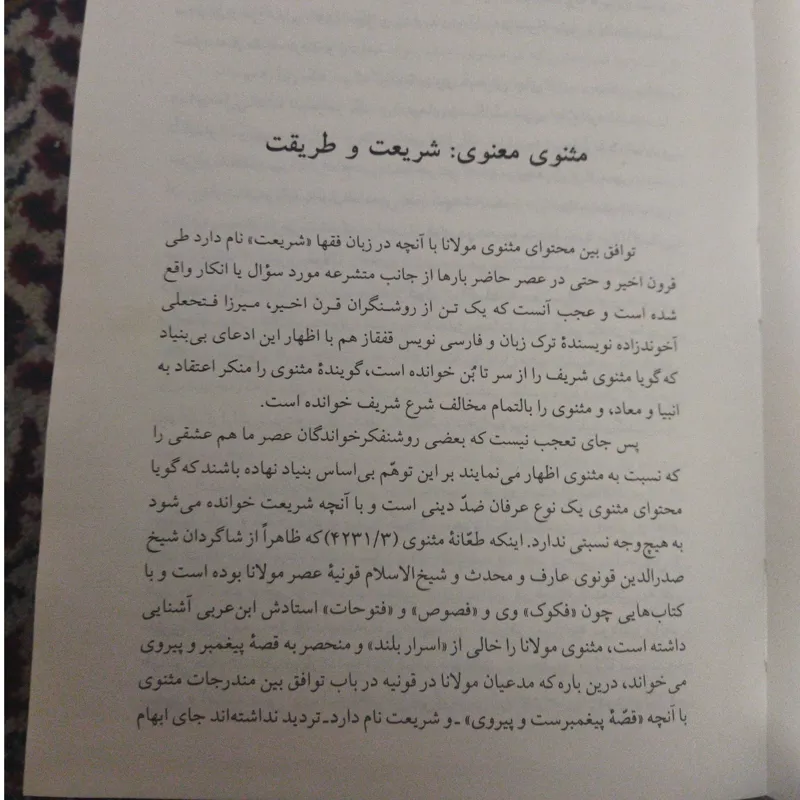 مثنوی معنوی: شریعت و طریقت
توافق بین محتوای مثنوی مولانا با آنچه در زبان فقها «شریعت» نام دارد طی
قرون اخیر و حتی در عصر حاضر بارها از جانب متشرعه مورد سؤال یا انکار واقع
شده است و عجب آنست که یک تن از روشنگران قرن اخیر، میرزا فتحعلی
آخوندزاده نویسندهٔ ترک زبان و فارسی نویس قفقاز هم با اظهار این ادعای بی‌بنیاد
که گویا مثنوی شریف را از سر تا بُن خوانده است، گویندهٔ مثنوی را منکر اعتقاد به
انبیا و معاد، و مثنوی را بالتمام مخالف شرع شریف خوانده است.
پس جای تعجب نیست که بعضی روشنفکرخواندگان عصر ما هم عشقی را
که نسبت به مثنوی اظهار می‌نمایند بر این توهّم بی‌اساس بنیاد نهاده باشند که گویا
محتوای مثنوی یک نوع عرفان ضدّ دینی است و با آنچه شریعت خوانده می‌شود
به هیچ‌وجه نسبتی ندارد. اینکه طعّانهٔ مثنوی (۴۲۳۱/۳) که ظاهراً از شاگردان شیخ
صدرالدین قونوی عارف و محدث و شیخ‌الاسلام قونیهٔ عصر مولانا بوده است و با
کتاب‌هایی چون «فکوک» وی و «فصوص» و «فتوحات» استادش ابن‌عربی آشنایی
داشته است، مثنوی مولانا را خالی از «اسرار بلند» و منحصر به قصهٔ پیغمبر و پیروی
می‌خواند، درین باره که مدعیان مولانا در قونیه در باب توافق بین مندرجات مثنوی
با آنچه «قصّهٔ پیغمبرست و پیروی» ـ و شریعت نام دارد ـ تردید نداشته‌اند جای ابهام